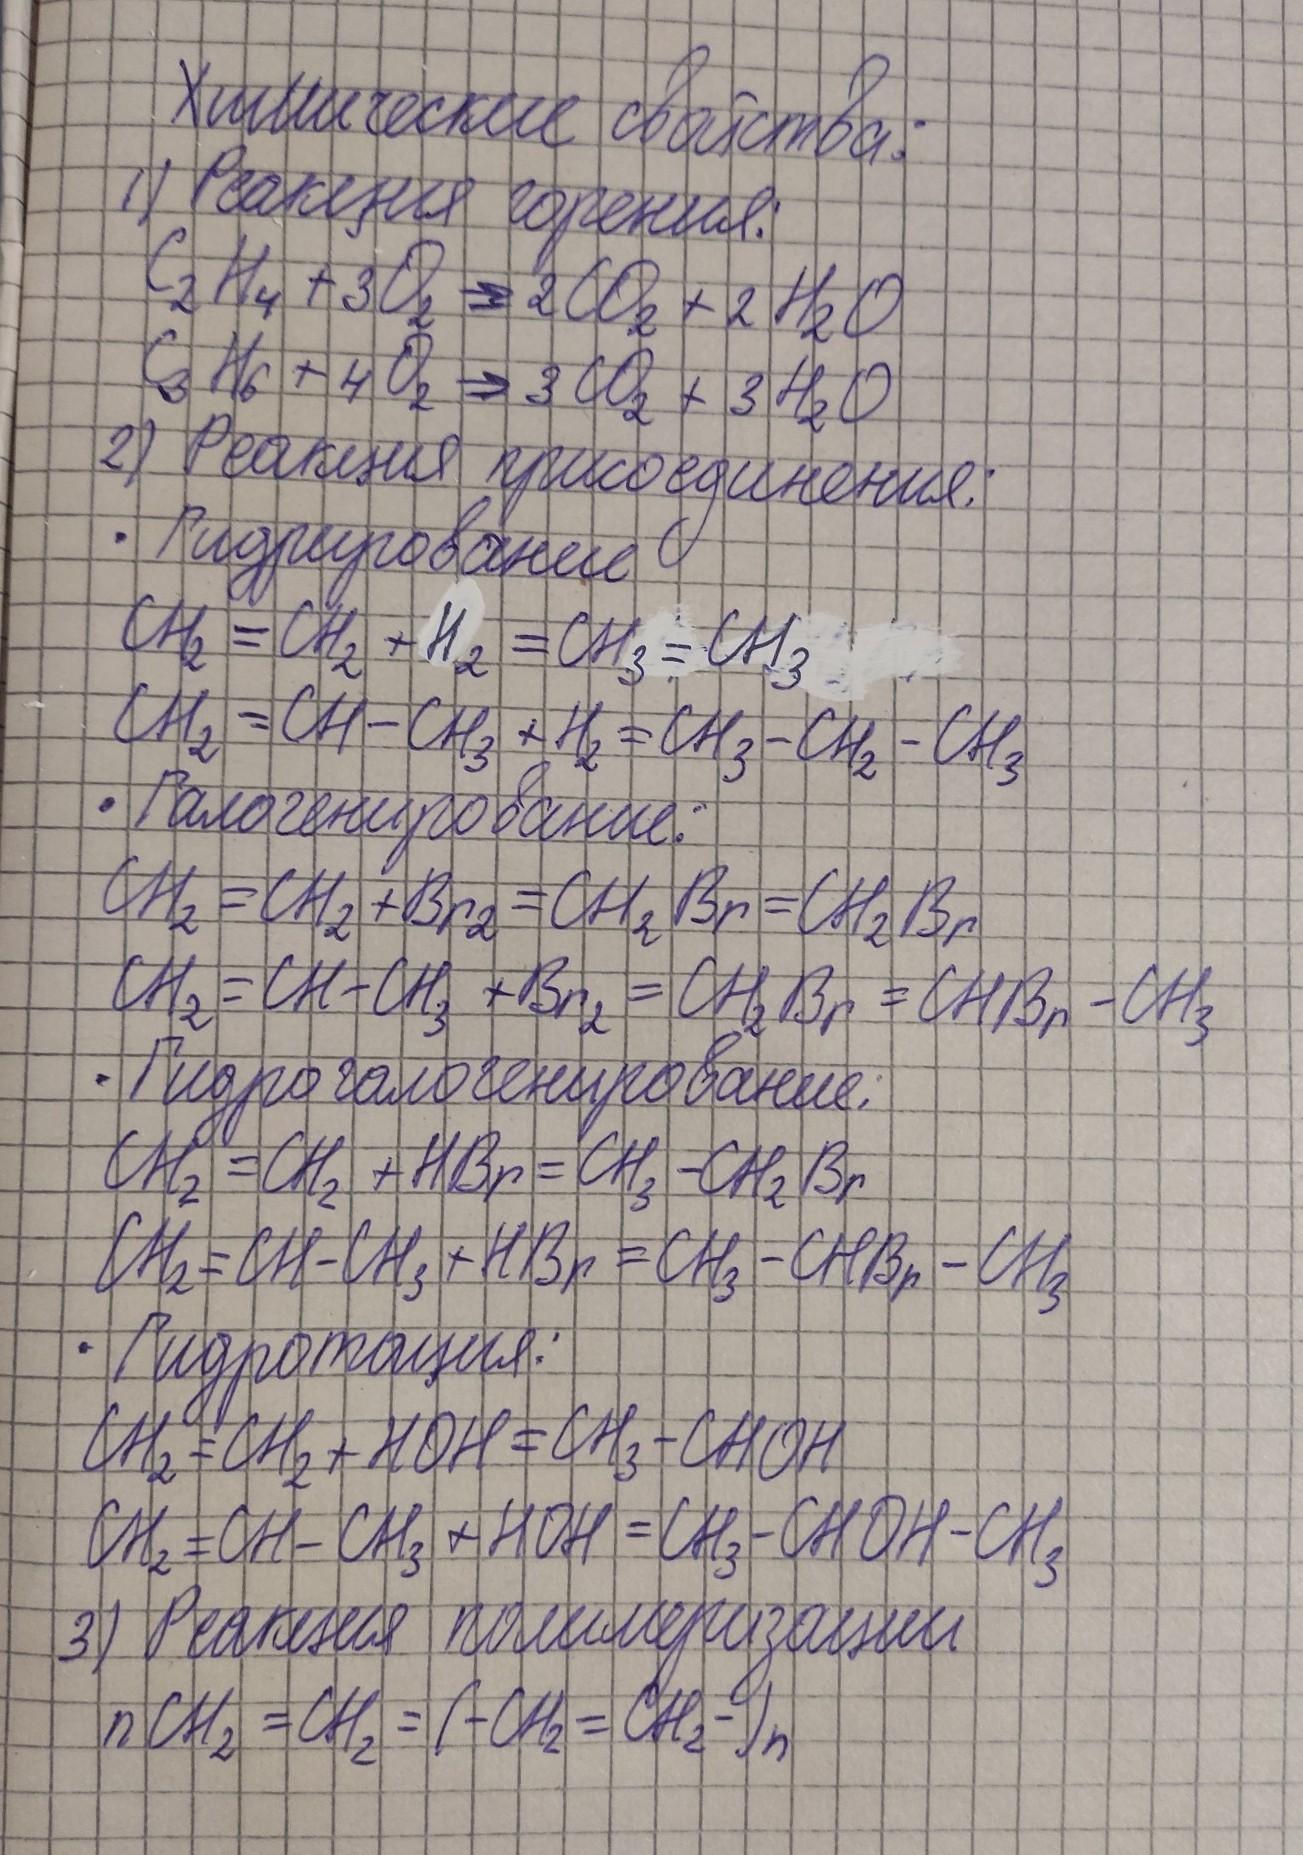 Химические свойства:
1) Реакция горения:
C₂H₄ + 3O₂ → 2CO₂ + 2H₂O
C₃H₆ + 4O₂ → 3CO₂ + 3H₂O
2) Реакция присоединения:
· Гидрирование
CH₂ = CH₂ + H₂ = CH₃ = CH₃
CH₂ = CH – CH₃ + H₂ = CH₃ – CH₂ – CH₃
· Галогенирование:
CH₂ = CH₂ + Br₂ = CH₂Br = CH₂Br
CH₂ = CH – CH₃ + Br₂ = CH₂Br = CHBr – CH₃
· Гидрогалогенирование:
CH₂ = CH₂ + HBr = CH₃ – CH₂Br
CH₂ = CH – CH₃ + HBr = CH₃ – CHBr – CH₃
· Гидротация:
CH₂ = CH₂ + HOH = CH₃ – CHOH
CH₂ = CH – CH₃ + HOH = CH₃ – CHOH – CH₃
3) Реакция полимеризации
nCH₂ = CH₂ = (–CH₂ = CH₂–)n